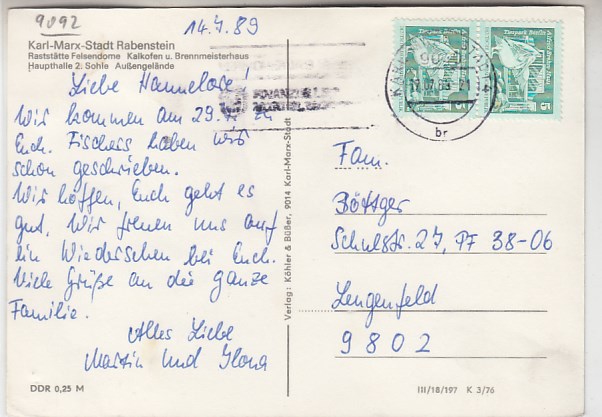 9092
14.7.89
Karl-Marx-Stadt Rabenstein
Raststätte Felsendome Kalkofen u. Brennmeisterhaus
Haupthalle 2: Sohle Außengelände
Liebe Hannelore!
Wir kommen am 29. zu
Euch. Fischers haben wir
schon geschrieben.
Wir hoffen, Euch geht es
gut. Wir freuen uns auf
ein Wiedersehen bei Euch.
Viele Grüße an die ganze
Familie.
Alles Liebe
Martin und Ilona
DDR 0,25 M
Verlag: Köhler & Büßer, 9014 Karl-Marx-Stadt
Tierpark Berlin
5
DDR
Tierpark Berlin
5
DDR
br
Fam.
Böttger
Schulstr. 27, PF 38-06
Lengenfeld
9802
III/18/197 K 3/76